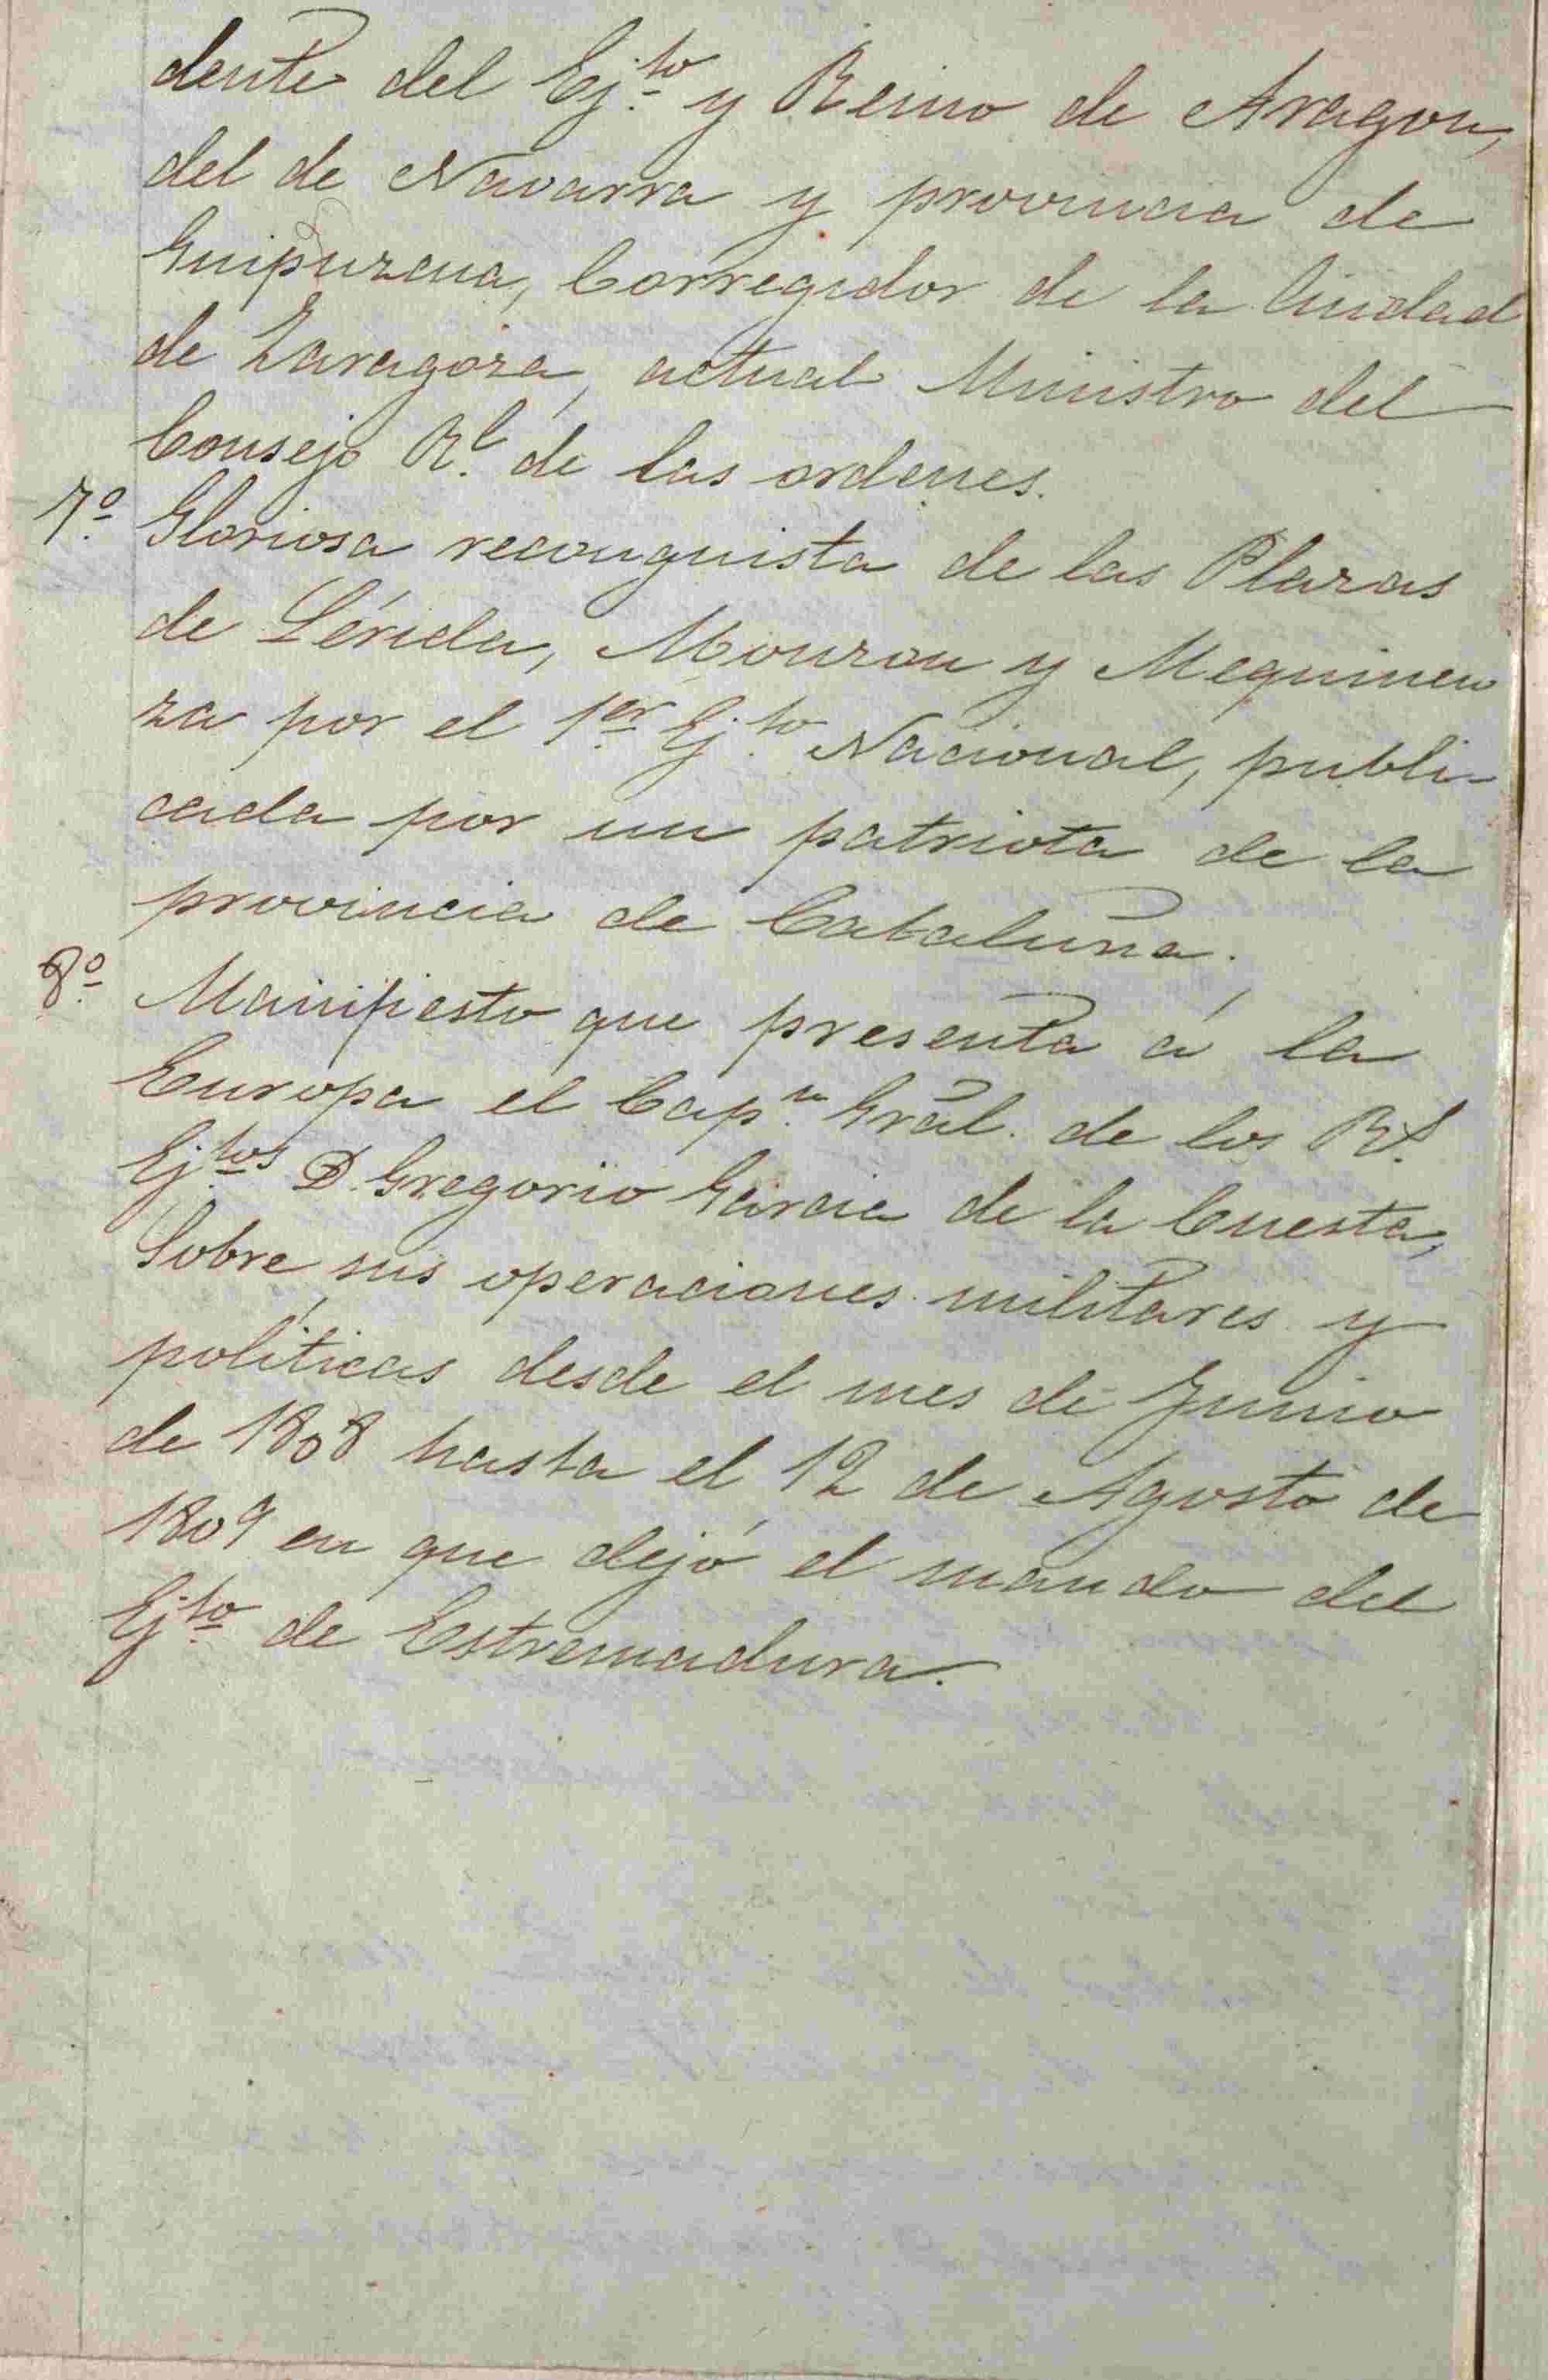 dente del Ej.to y Reino de Aragon,
del de Navarra y provincia de
Guipuzcua, Corregidor de la Ciudad
de Zaragoza, actual Ministro del
Consejo R.l de las ordenes.
7.o Gloriosa reconquista de las Plazas
de Lérida, Monzon y Mequinen
za por el 1.er Ej.to Nacional, publi-
cada por un patriota de la
provincia de Cataluña.
8.o Manifiesto que presenta á la
Europa el Cap.n Gral. de los R.s
Ej.tos D. Gregorio Garcia de la Cuesta,
Sobre sus operaciones militares y
políticas desde el mes de Junio
de 1808 hasta el 12 de Agosto de
1809 en que dejó el mando del
Ej.to de Estremadura.